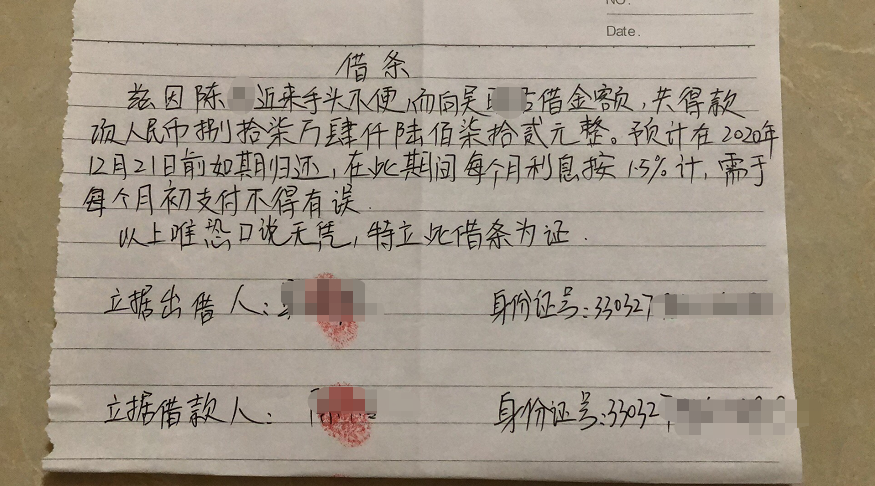 NO.
Date.
借条
兹因陈 近来手头不便,而向吴 借金额,共得款
项人民币捌拾柒万肆仟陆佰柒拾贰元整。预计在2020年
12月21日前如期归还,在此期间每个月利息按1.5%计,需于
每个月初支付不得有误.
以上唯恐口说无凭,特立此借条为证.
立据出借人: 身份证号:330327
立据借款人: 身份证号:33032